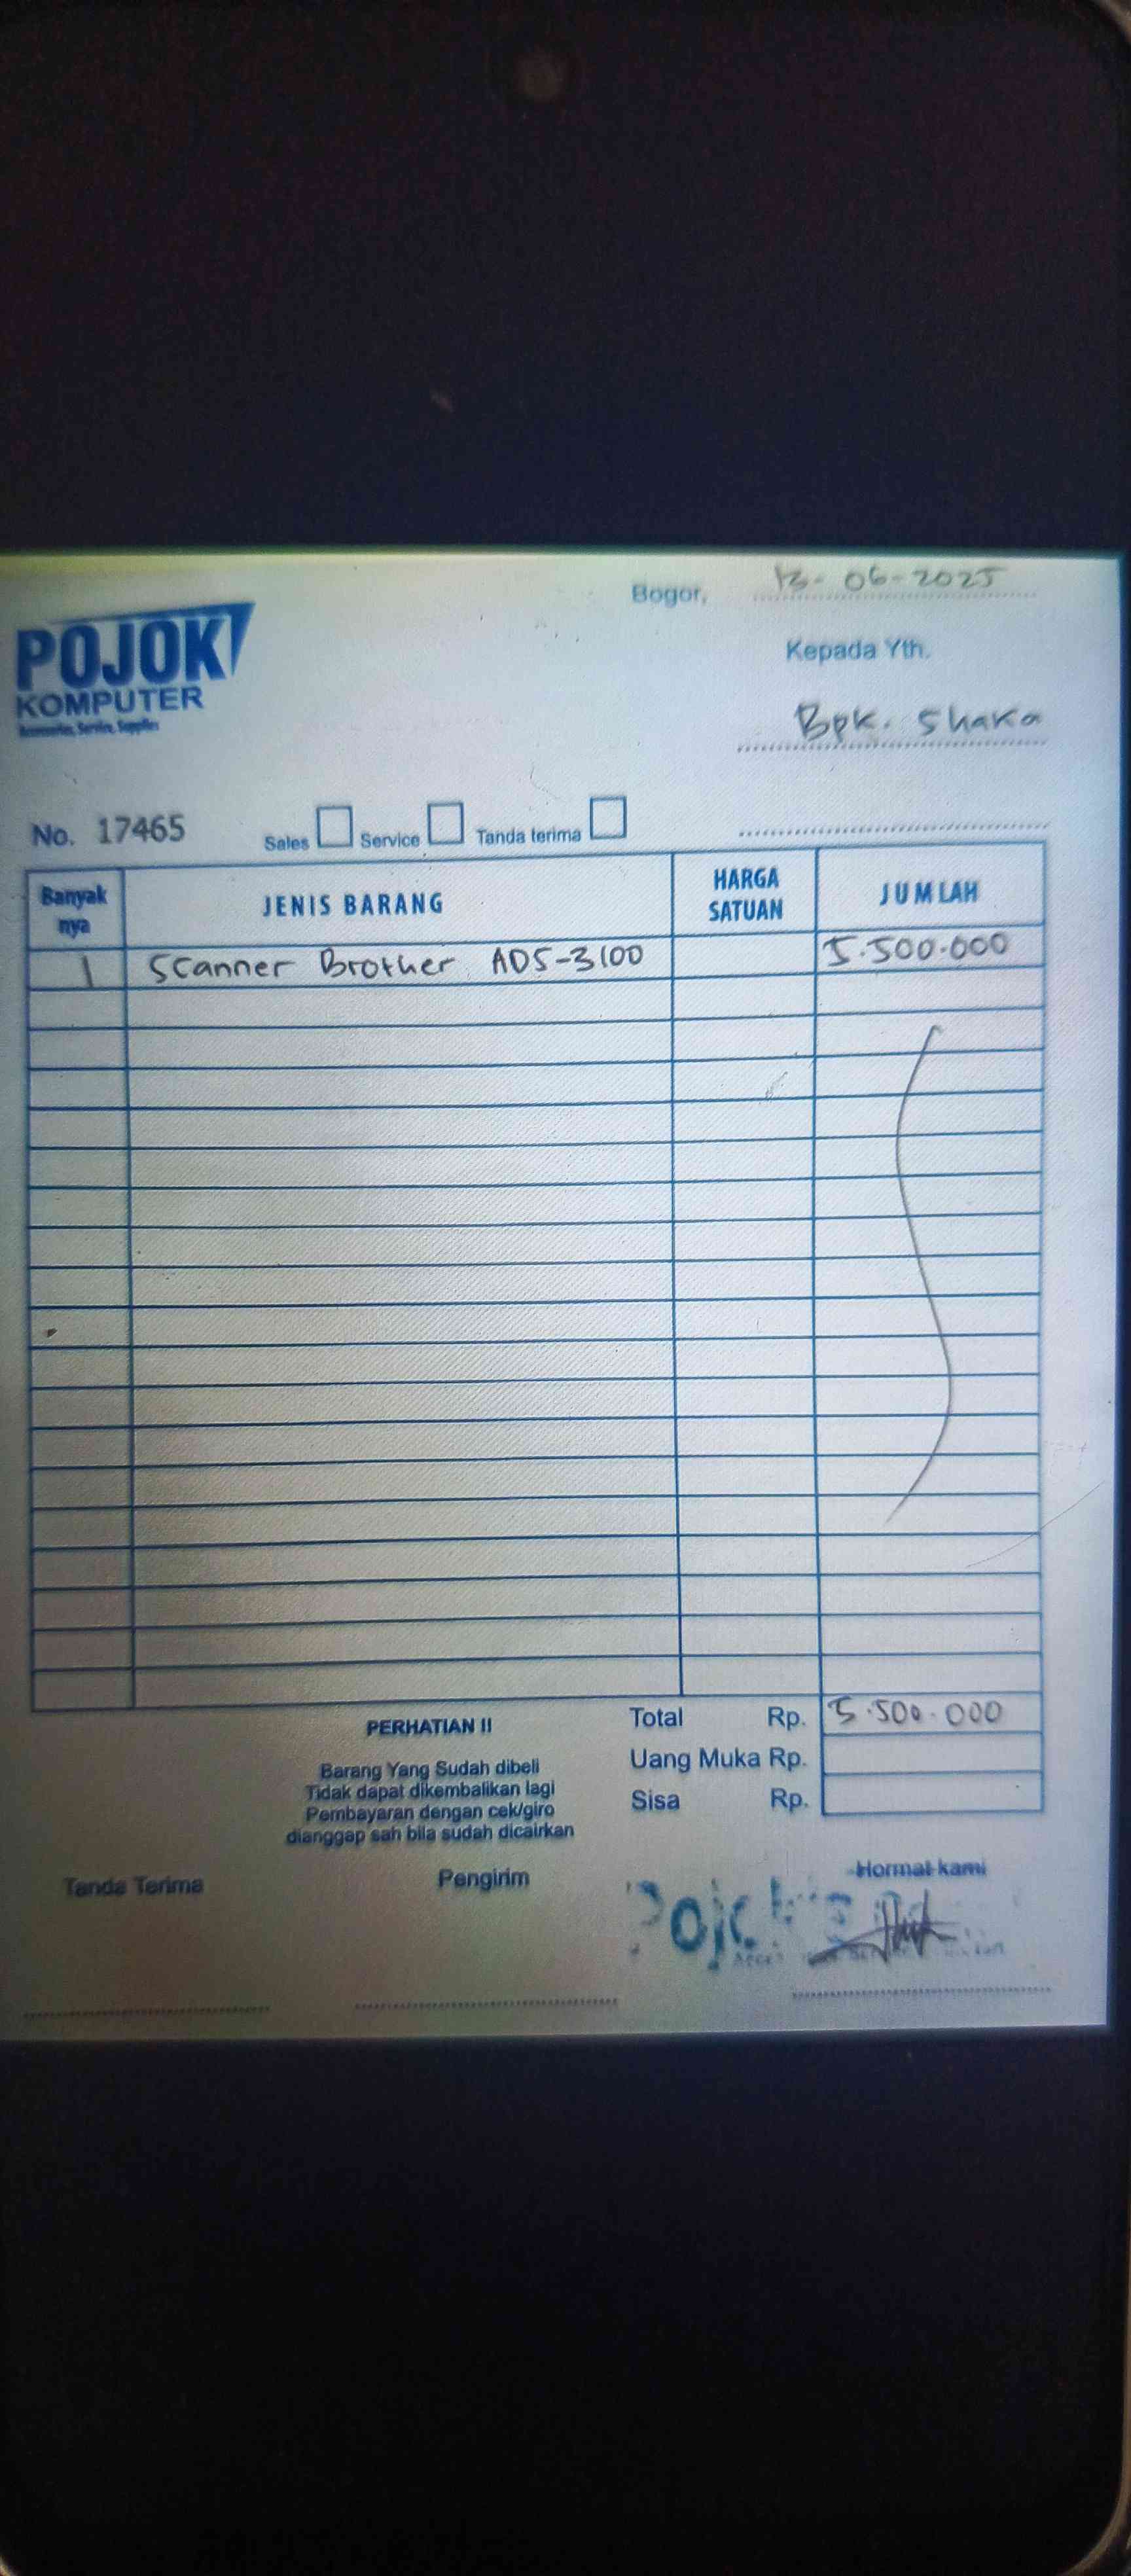 Bogor, 13-06-2025
POJOK
KOMPUTER
Accessories, Service, Supplies
Kepada Yth.
Bpk. Shaka
No. 17465
Sales Service Tanda terima
Banyak nya JENIS BARANG HARGA SATUAN JUMLAH
1 Scanner Brother ADS-3100 5.500.000
Total Rp. 5.500.000
Uang Muka Rp.
Sisa Rp.
PERHATIAN !!
Barang Yang Sudah dibeli
Tidak dapat dikembalikan lagi
Pembayaran dengan cek/giro
dianggap sah bila sudah dicairkan
Tanda Terima Pengirim Hormat kami